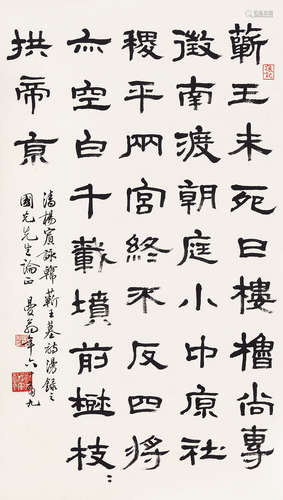 蘄王未死日樓櫓尚專
徵南渡朝庭小中原社
稷平兩宮終不反四將
亦空白千載墳前樹枝〻
拱帝京
楊賓詠韓蘄王墓詩漫錄之
國光先生論正 曼翁年六十有九